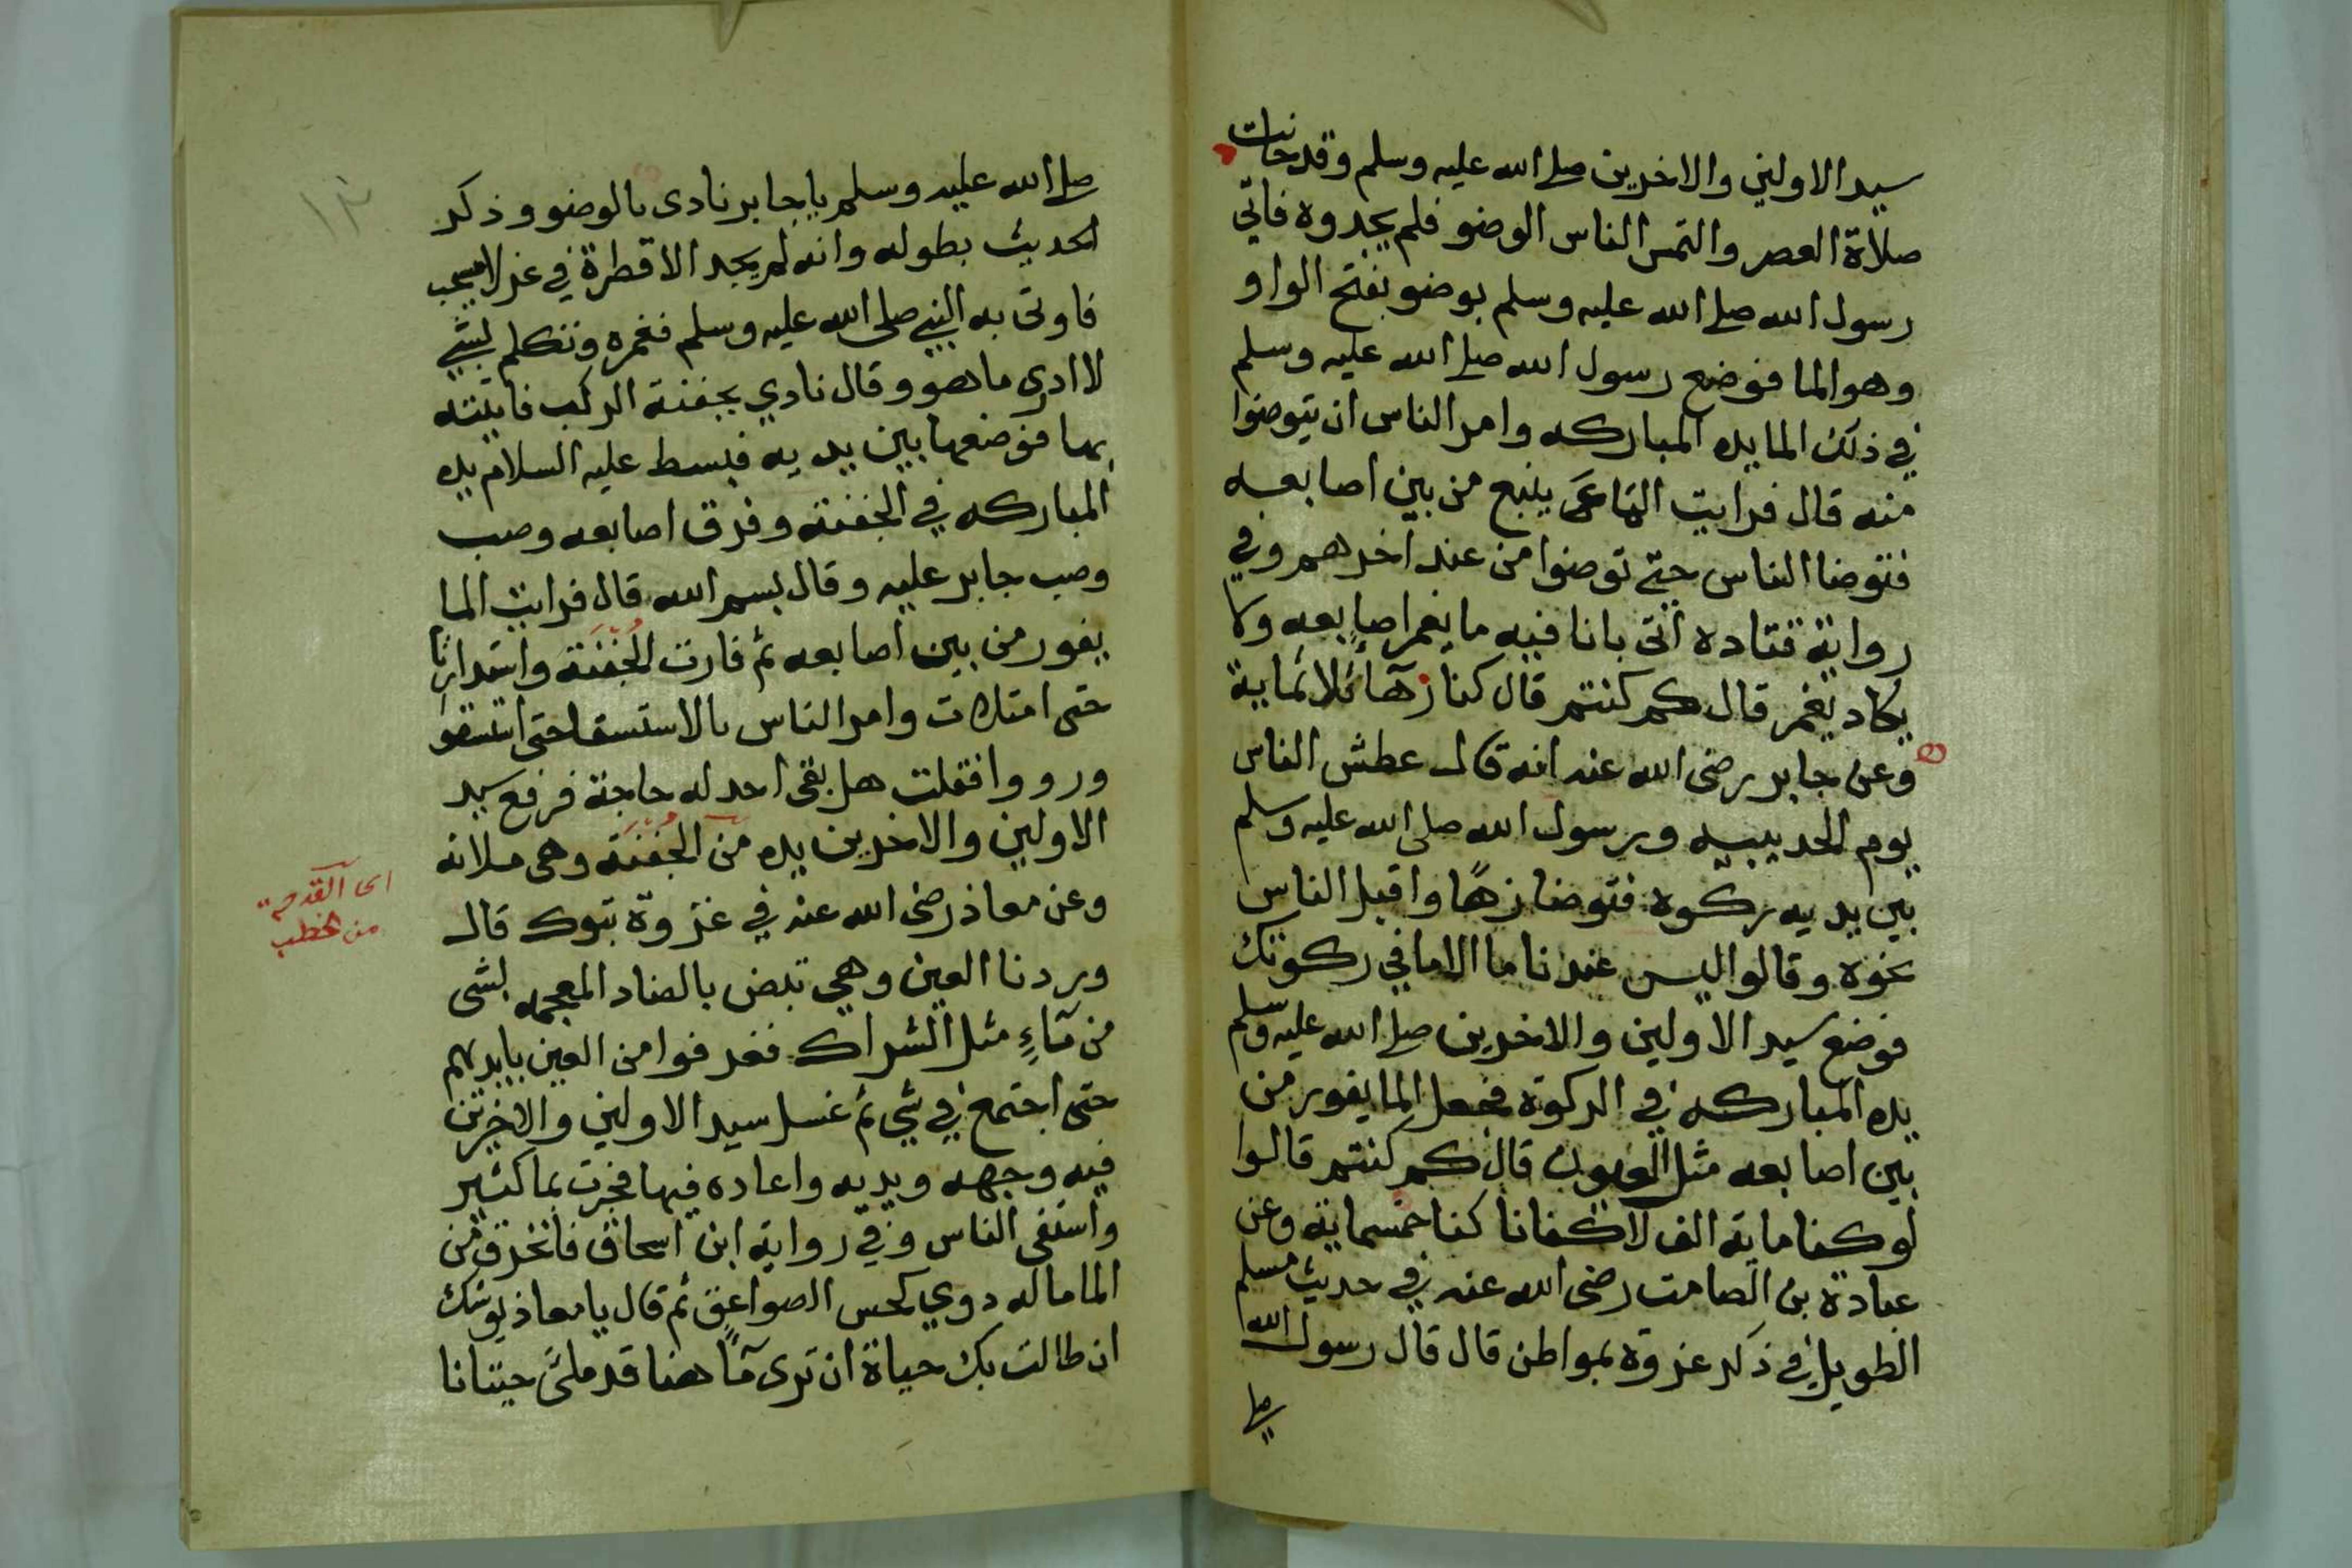 سيد الاولين والاخرين صلى الله عليه وسلم وقد حانت
صلاة العصر والتمس الناس الوضو فلم يجدوه فاتي
رسول الله صلى الله عليه وسلم بوضو بفتح الواو
وهو الما فوضع رسول الله صلى الله عليه وسلم
في ذلك الما يده المباركه وامر الناس ان يتوضوا
منه قال فرايت الما ينبع من بين اصابعه
فتوضا الناس حتى توضوا من عند اخرهم وفي
رواية قتاده اتى بانا فيه ما يغمر اصابعه ولا
يكاد يغمر قال كم كنتم قال كنا زهآ ثلاثماية
وعن جابر رضى الله عنه انه قال عطش الناس
يوم الحديبيه ورسول الله صلى الله عليه وسلم
بين يديه ركوه فتوضا منها واقبل الناس
نحوه وقالوا ليس عندنا ما الا ما في ركوتك
فوضع سيد الاولين والاخرين صلى الله عليه وسلم
يده المباركه في الركوة فجعل الما يفور من
بين اصابعه مثل العيون قال كم كنتم قالوا
لو كنا ماية الف لاكفانا كنا خمسماية وعن
عبادة بن الصامت رضى الله عنه في حديث مسلم
الطويل في ذكر غزوة بمواطن قال قال رسول الله
صلى
١٢
صلى الله عليه وسلم يا جابر نادى بالوضو وذكر
الحديث بطوله وانه لم يجد الا قطرة في عزلا
فاوتى به النبي صلى الله عليه وسلم فغمره وتكلم بشي
لا ادرى ما هو وقال نادي بجفنة الركب فاتيته
بها فوضعها بين يديه فبسط عليه السلام يده
المباركه في الجفنة وفرق اصابعه وصب
وصب جابر عليه وقال بسم الله قال فرايت الما
يفور من بين اصابعه ثم فارت الجفنة واستدارت
حتى امتلات وامر الناس بالاستسقا حتى استسقوا
ورووا فقلت هل بقى احد له حاجة فرفع سيد
الاولين والاخرين يده من الجفنة وهى ملانه
وعن معاذ رضى الله عنه في غزوة تبوك قال
وردنا العين وهي تبض بالضاد المعجمه بشى
من مآءٍ مثل الشراك فغرفوا من العين بايديهم
حتى اجتمع في شي ثم غسل سيد الاولين والاخرين
فيه وجهه ويديه واعاده فيها فجرت بما كثير
واستقى الناس وفي رواية ابن اسحاق فانخرق من
الما ماله دوي كحس الصواعق ثم قال يا معاذ يوشك
ان طالت بك حياة ان ترى مآ هنا قد ملئ جنانا